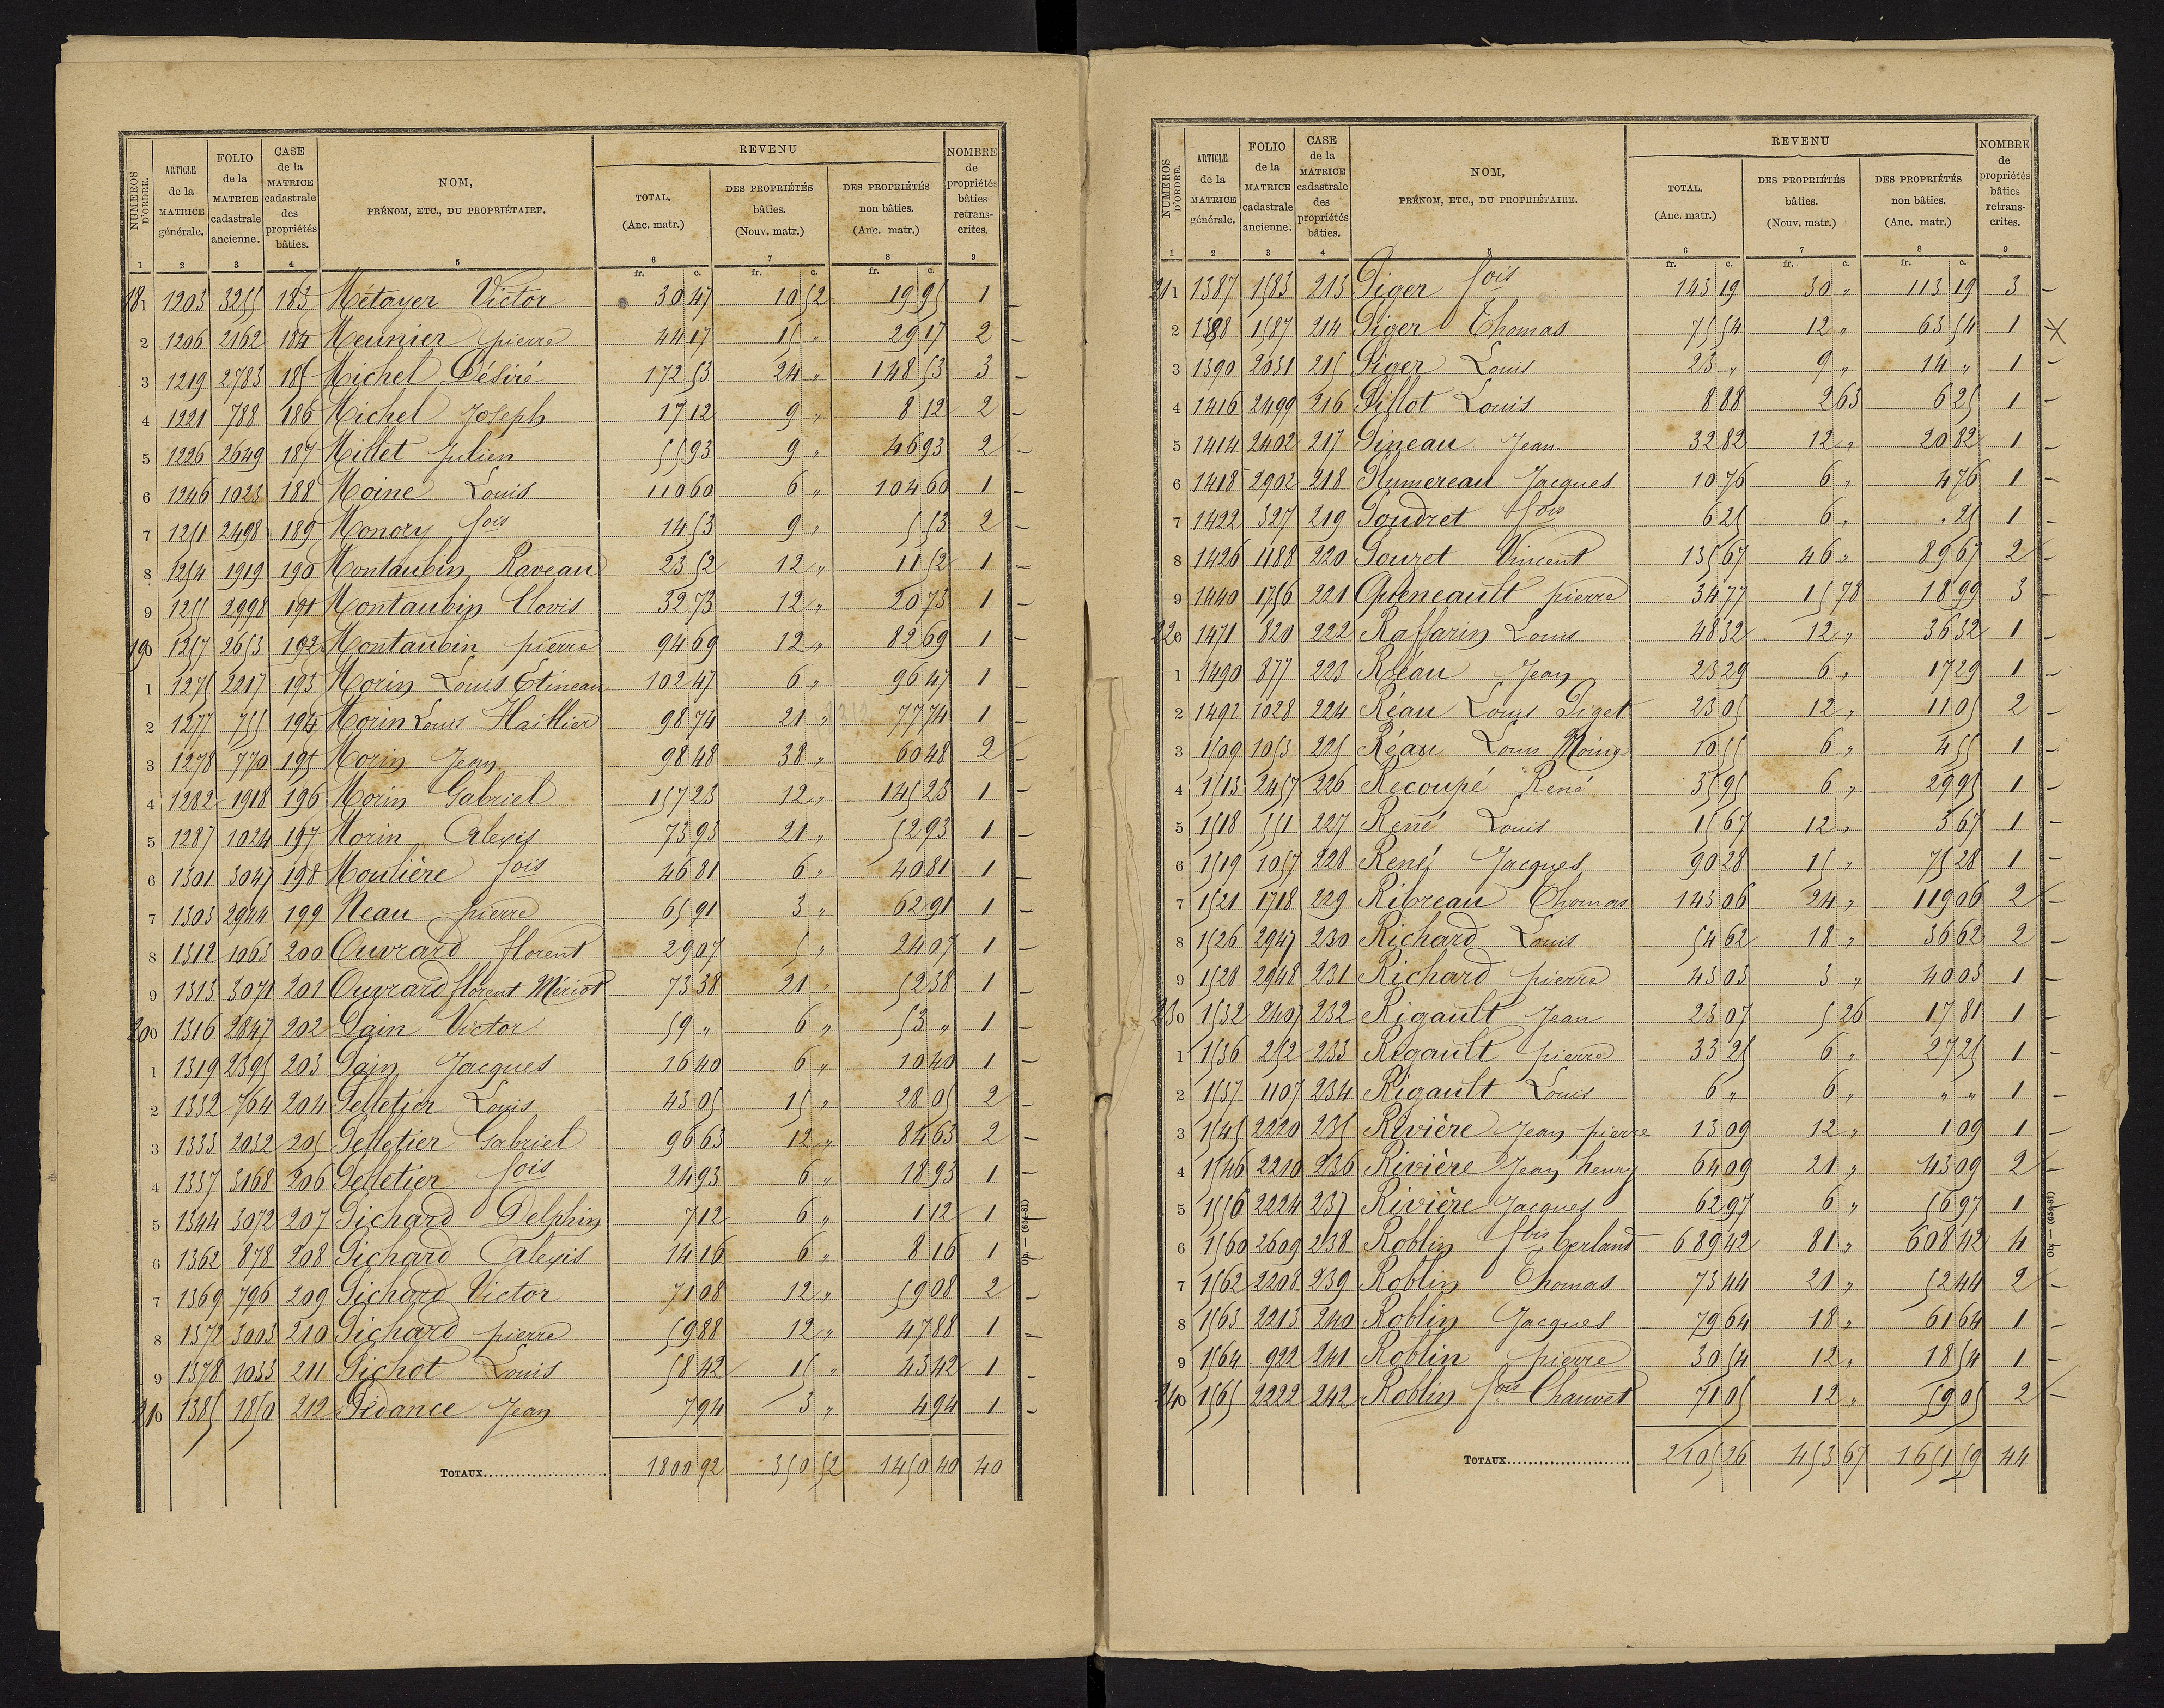 NUMÉROS D'ORDRE. ARTICLE de la MATRICE générale. FOLIO de la MATRICE cadastrale ancienne. CASE de la MATRICE cadastrale des propriétés bâties. NOM, PRÉNOM, ETC., DU PROPRIÉTAIRE. REVENU TOTAL. (Anc. matr.) DES PROPRIÉTÉS bâties. (Nouv. matr.) DES PROPRIÉTÉS non bâties. (Anc. matr.) NOMBRE de propriétés bâties retranscrites.
1 2 3 4 5 6 7 8 9
fr. c. fr. c. fr. c.
181 1203 3255 183 Métayer Victor 30 47 10 52 19 95 1
2 1206 2162 184 Meunier pierre 44 17 15 " 29 17 2
3 1219 2783 185 Michel Désiré 172 53 24 " 148 53 3
4 1221 788 186 Michel Joseph 17 12 9 " 8 12 2
5 1226 2649 187 Millet Julien 55 93 9 " 46 93 2
6 1246 1023 188 Moine Louis 110 60 6 " 104 60 1
7 1251 2498 189 Monory fois 14 53 9 " 5 53 2
8 1254 1919 190 Montaubin Raveau 23 52 12 " 11 52 1
9 1255 2998 191 Montaubin Clovis 32 73 12 " 20 73 1
190 1257 2653 192 Montaubin pierre 94 69 12 " 82 69 1
1 1275 2217 193 Morin Louis Etineau 102 47 6 " 96 47 1
2 1277 755 194 Morin Louis Haillier 98 74 21 " 77 74 1
3 1278 770 195 Morin Jean 98 48 38 " 60 48 2
4 1282 1918 196 Morin Gabriel 157 23 12 " 145 23 1
5 1287 1024 197 Morin Alexis 73 93 21 " 52 93 1
6 1301 3047 198 Moulière fois 46 81 6 " 40 81 1
7 1303 2944 199 Neau pierre 65 91 3 " 62 91 1
8 1312 1063 200 Ouvrard florent 29 07 5 " 24 07 1
9 1313 3071 201 Ouvrard florent Mériot 73 38 21 " 52 38 1
200 1316 2847 202 Pain Victor 59 " 6 " 53 " 1
1 1319 2395 203 Pain Jacques 16 40 6 " 10 40 1
2 1332 764 204 Pelletier Louis 43 05 15 " 28 05 2
3 1333 2032 205 Pelletier Gabriel 96 63 12 " 84 63 2
4 1337 3168 206 Pelletier fois 24 93 6 " 18 93 1
5 1344 3072 207 Pichard Delphin 7 12 6 " 1 12 1
6 1362 878 208 Pichard Alexis 14 16 6 " 8 16 1
7 1369 796 209 Pichard Victor 71 08 12 " 59 08 2
8 1372 3003 210 Pichard pierre 59 88 12 " 47 88 1
9 1378 1033 211 Pichot Louis 58 42 15 " 43 42 1
210 1385 1850 212 Pidance Jean 7 94 3 " 4 94 1
TOTAUX 1800 92 350 52 1450 40 40
NUMÉROS D'ORDRE. ARTICLE de la MATRICE générale. FOLIO de la MATRICE cadastrale ancienne. CASE de la MATRICE cadastrale des propriétés bâties. NOM, PRÉNOM, ETC., DU PROPRIÉTAIRE. REVENU TOTAL. (Anc. matr.) DES PROPRIÉTÉS bâties. (Nouv. matr.) DES PROPRIÉTÉS non bâties. (Anc. matr.) NOMBRE de propriétés bâties retranscrites.
1 2 3 4 5 6 7 8 9
fr. c. fr. c. fr. c.
211 1387 1583 213 Piger fois 143 19 30 " 113 19 3
2 1388 1587 214 Piger Thomas 75 54 12 " 63 54 1
3 1390 2031 215 Piger Louis 23 " 9 " 14 " 1
4 1416 2499 216 Pillot Louis 8 88 2 63 6 25 1
5 1414 2402 217 Pineau Jean 32 82 12 " 20 82 1
6 1418 2902 218 Plumereau Jacques 10 76 6 " 4 76 1
7 1422 327 219 Poudret fois 6 25 6 " " 25 1
8 1426 1188 220 Pouzet Vincent 135 67 46 " 89 67 2
9 1440 1756 221 Queneault pierre 34 77 15 78 18 99 3
220 1471 820 222 Raffarin Louis 48 32 12 " 36 32 1
1 1490 877 223 Réau Jean 23 29 6 " 17 29 1
2 1492 1028 224 Réau Louis Piget 23 05 12 " 11 05 2
3 1509 1053 225 Réau Louis Moine 10 55 6 " 4 55 1
4 1513 2457 226 Recoupé René 35 95 6 " 29 95 1
5 1518 551 227 René Louis 15 67 12 " 3 67 1
6 1519 1057 228 René Jacques 90 28 15 " 75 28 1
7 1521 1718 229 Ribreau Thomas 143 06 24 " 119 06 2
8 1526 2947 230 Richard Louis 54 62 18 " 36 62 2
9 1528 2948 231 Richard pierre 43 03 3 " 40 03 1
230 1532 2407 232 Rigault Jean 23 07 5 26 17 81 1
1 1536 252 233 Rigault pierre 33 25 6 " 27 25 1
2 1537 1107 234 Rigault Louis 6 " 6 " " " 1
3 1545 2220 235 Rivière Jean pierre 13 09 12 " 1 09 1
4 1546 2210 236 Rivière Jean henry 64 09 21 " 43 09 2
5 1556 2224 237 Rivière Jacques 62 97 6 " 56 97 1
6 1560 2609 238 Roblin fois Gerland 689 42 81 " 608 42 4
7 1562 2208 239 Roblin Thomas 73 44 21 " 52 44 2
8 1563 2213 240 Roblin Jacques 79 64 18 " 61 64 1
9 1564 922 241 Roblin pierre 30 54 12 " 18 54 1
240 1565 2222 242 Roblin fois Chauvet 71 05 12 " 59 05 2
TOTAUX 2105 26 453 67 1651 59 44